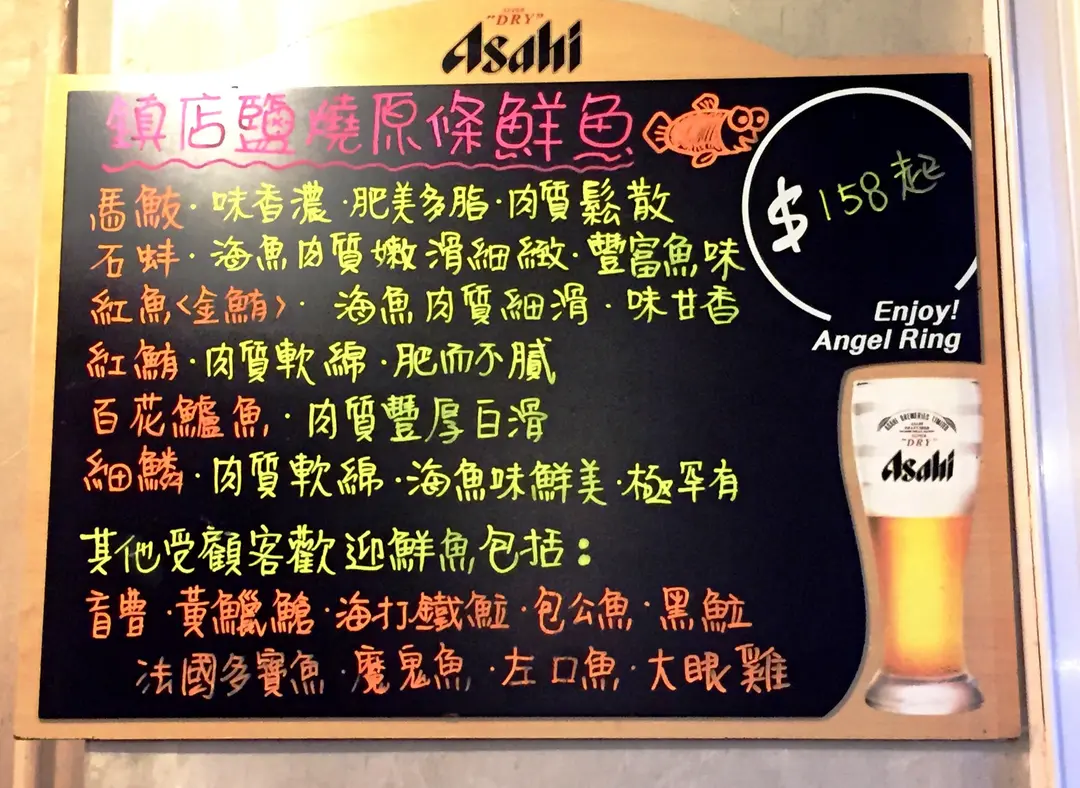 SUPER
"DRY"
Asahi
鎮店鹽燒原條鮮魚
$158起
馬鮁·味香濃·肥美多脂·肉質鬆散
石蚌·海魚肉質嫩滑細緻·豐富魚味
紅魚〈金鮪〉· 海魚肉質細滑·味甘香
紅鮪·肉質軟綿·肥而不膩
百花鱸魚·肉質豐厚白滑
細鱗·肉質軟綿·海魚味鮮美·極罕有
其他受顧客歡迎鮮魚包括：
盲曹·黃鱲鮐·海打鐵魟·包公魚·黑魟
法國多寶魚·魔鬼魚·左口魚·大眼雞
Enjoy!
Angel Ring
ASAHI BREWERIES LIMITED
"DRY"
Asahi